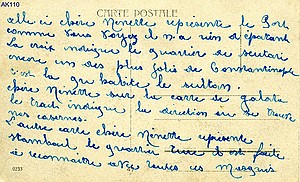 AK110
CARTE POSTALE
celle ci chère Ninette représente le Port
comme vous voyez il n'a rien d'épatant
La croix indique le quartier de scutari
encore un des plus jolis de Constantinople
c'est la qu habite le sultan.
chère Ninette sur la carte de galata
le trait indique la direction ou se trouve
nos casernes.
L'autre carte chère Ninette représente
stamboul le quartier turc d est facile
a reconnaitre avec toutes ces mosquées
0233